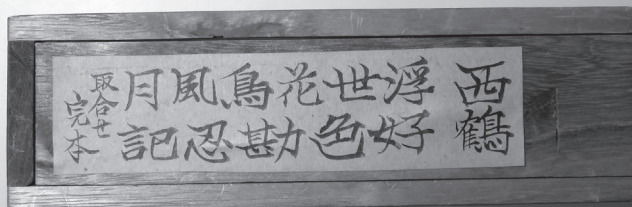 西鶴
浮世花鳥風月
好色勘忍記
取合せ
完本